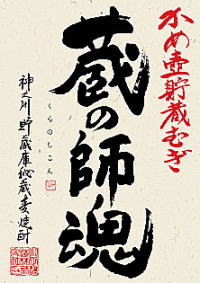 かめ壷貯蔵むぎ
蔵の師魂
くらのしこん
神之川 貯蔵庫秘蔵麦焼酎